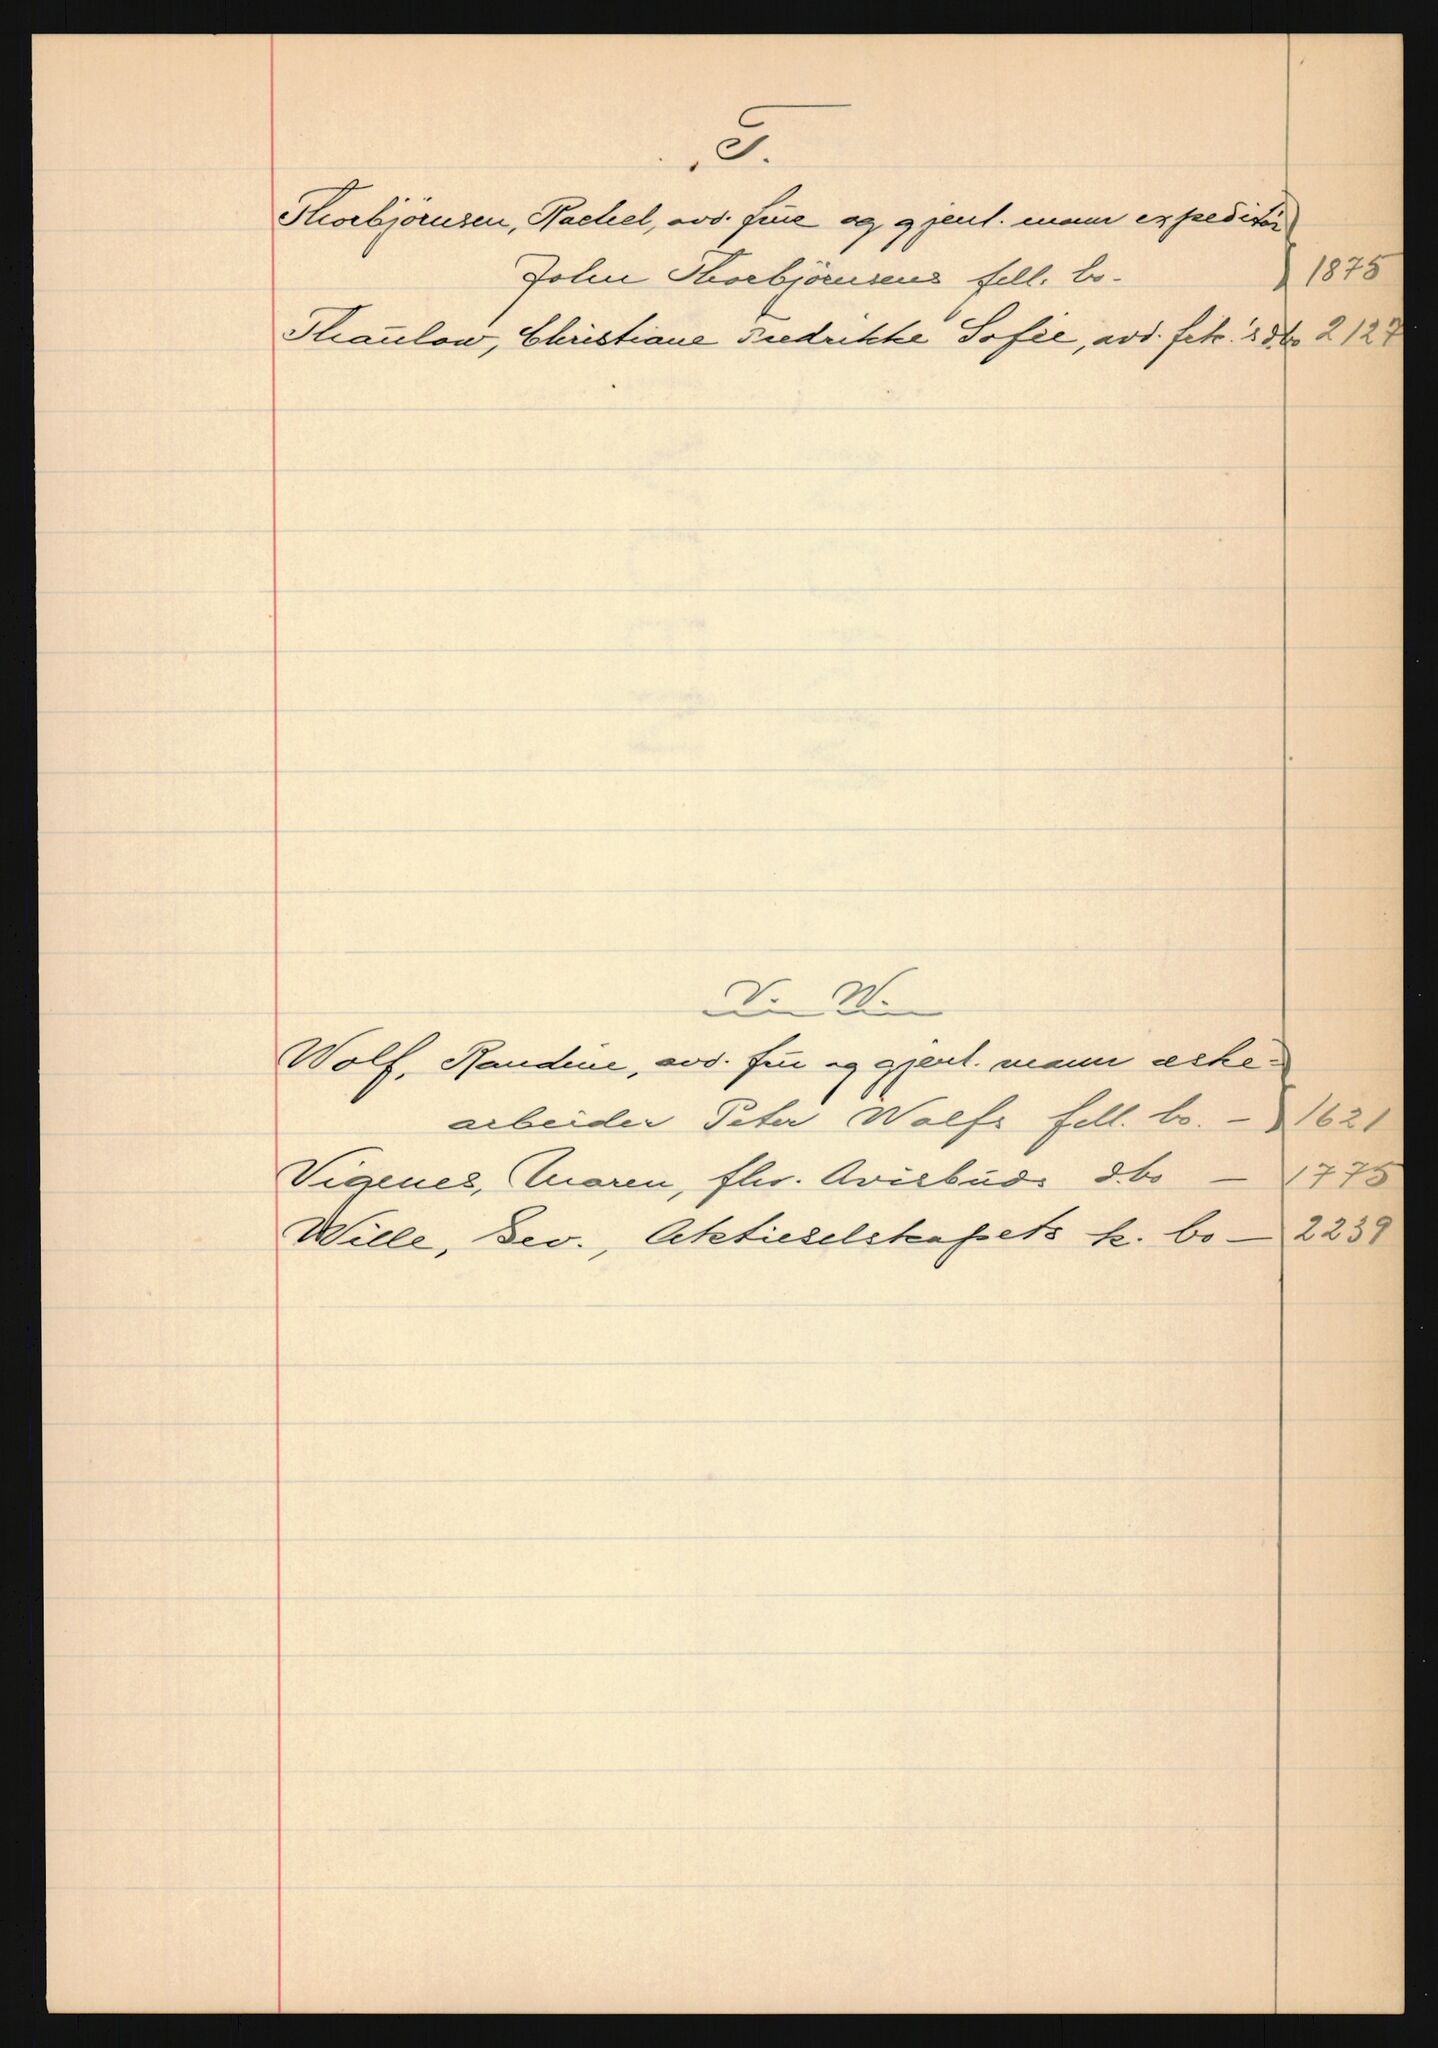 T.
Thorbjörnsen, Rachel, avd. frue og gjenl. mann expeditör
John Thorbjörnsens fell. bo. 1875
Thaulow, Christiane Fredrikke Sofie, avd. frk.'s d.bo 2127
V. W.
Wolf, Randine, avd. fru og gjenl. mann æske-
arbeider Peter Wolfs fell. bo. - 1621
Vigenes, Maren, fhv. Avisbuds d.bo - 1775
Wille, Sev., Aktieselskapets k. bo - 2239